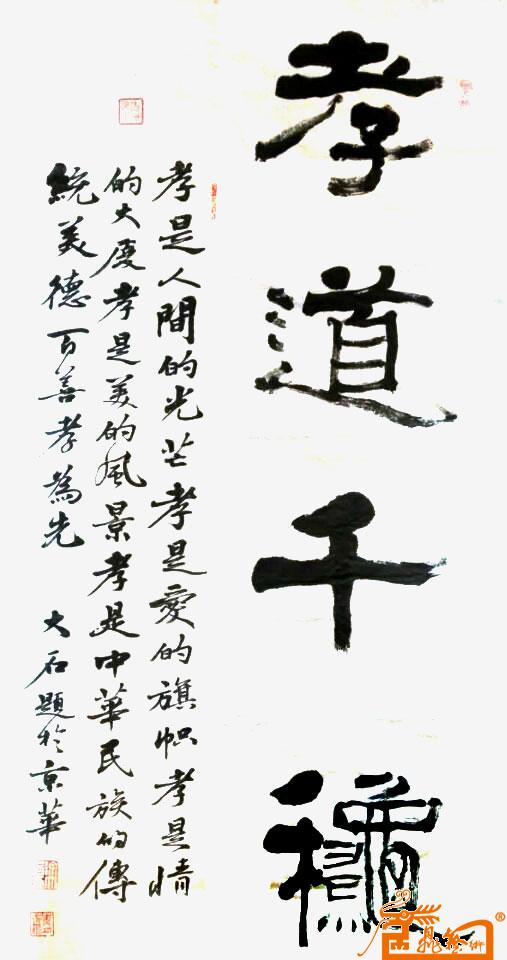 孝道千龝
孝是人間的光芒孝是愛的旗幟孝是情
的大厦孝是美的風景孝是中華民族的傳
統美德百善孝為先 大石題於京華